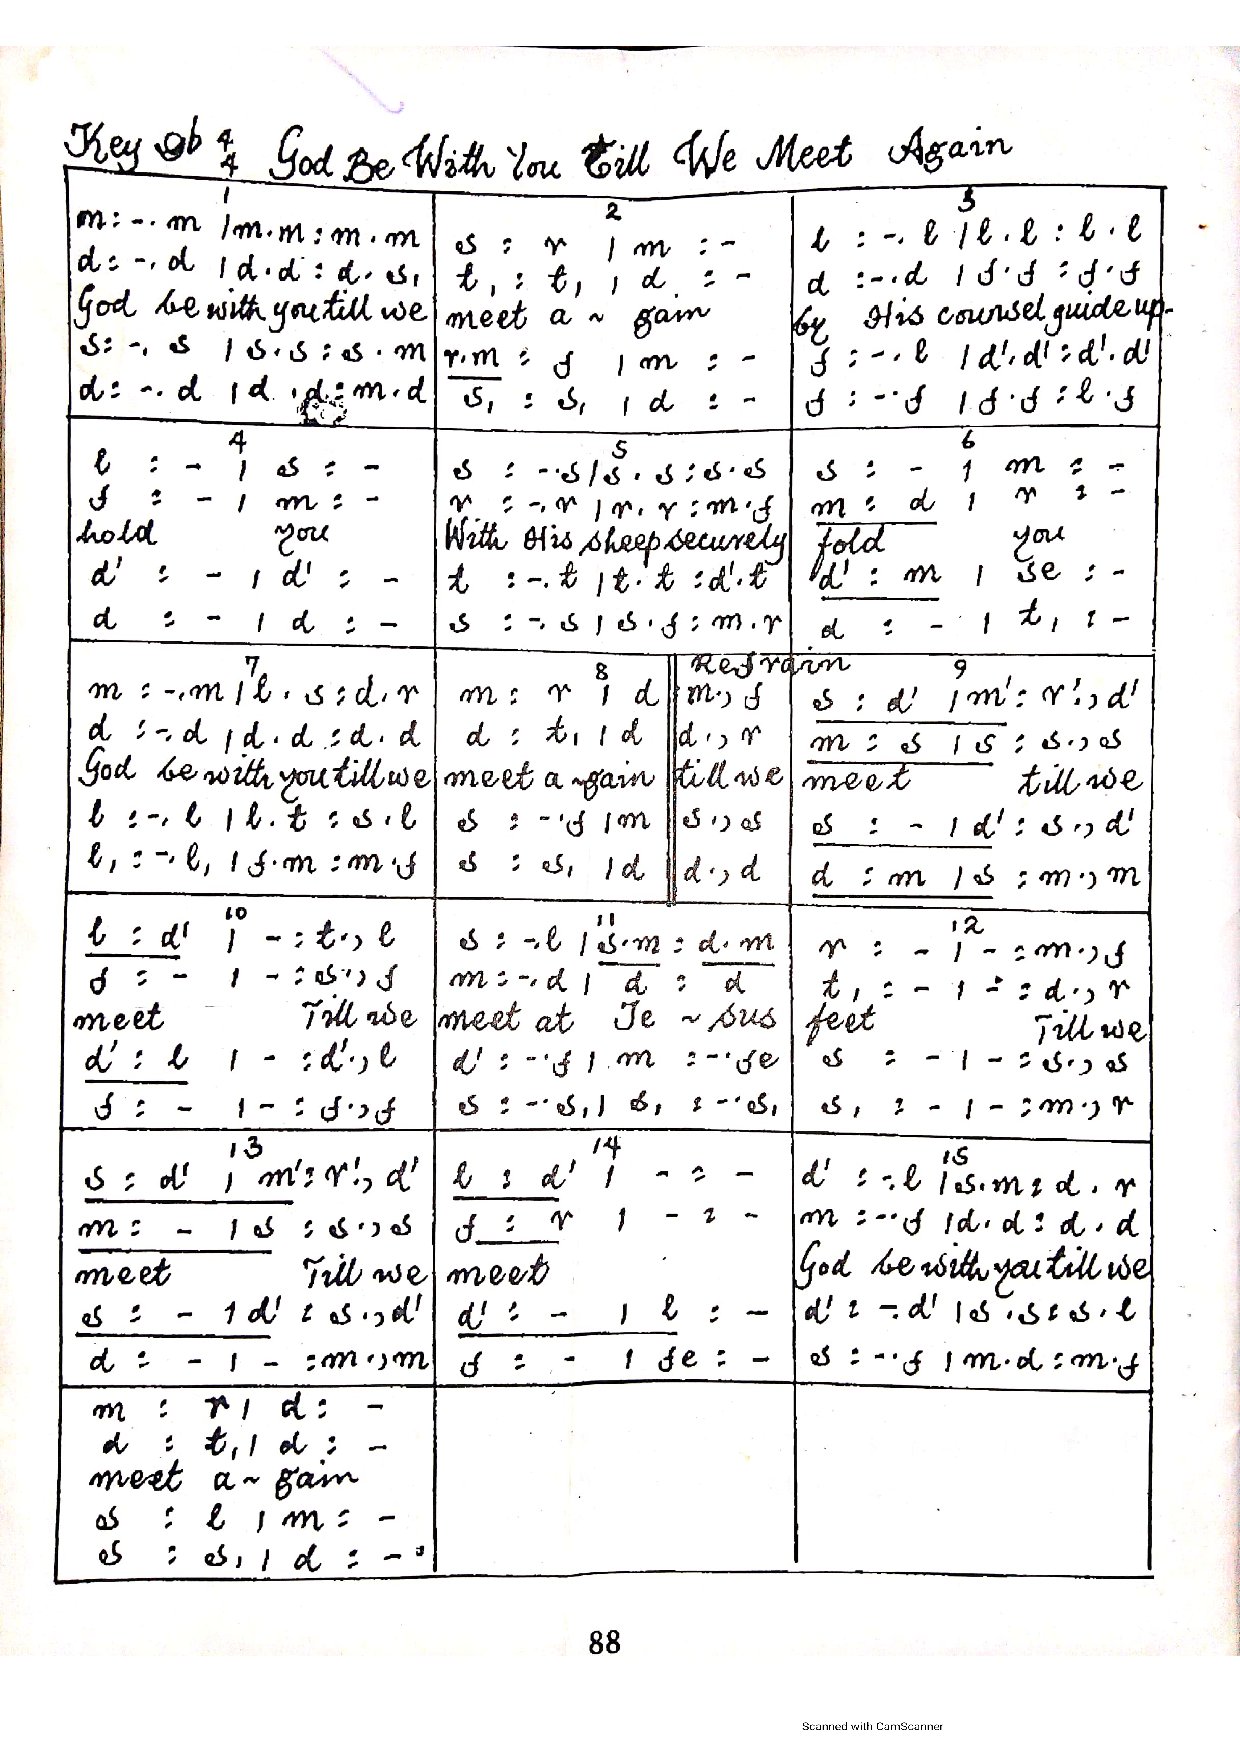 Key Db 4/4 God Be With You Till We Meet Again
1
m : -. m | m . m : m . m
d : -. d | d . d : d . s,
God be with you till we
s : -. s | s . s : s . m
d : -. d | d . d : m . d
2
s : r | m : -
t, : t, | d : -
meet a ~ gain
r.m : f | m : -
s, : s, | d : -
3
l : -. l | l . l : l . l
d : -. d | f . f : f . f
by His counsel guide up-
f : -. l | d' . d' : d' . d'
f : -. f | f . f : l . f
4
l : - | s : -
f : - | m : -
hold you
d' : - | d' : -
d : - | d : -
5
s : -. s | s . s : s . s
r : -. r | r . r : m . f
With His sheep securely
t : -. t | t . t : d' . t
s : -. s | s . f : m . r
6
s : - | m : -
m : d | r : -
fold you
d' : m | se : -
d : - | t, : -
7
m : -. m | l . s : d . r
d : -. d | d . d : d . d
God be with you till we
l : -. l | l . t : s . l
l, : -. l, | f . m : m . f
8
Refrain
m : r | d || m . , f
d : t, | d || d . , r
meet a ~ gain || till we
s : -. f | m || s . , s
s : s, | d || d . , d
9
s : d' | m' : r' . , d'
m : s | s : s . , s
meet till we
s : - | d' : s . , d'
d : m | s : m . , m
10
l : d' | - : t . , l
f : - | - : s . , f
meet Till we
d' : l | - : d' . , l
f : - | - : f . , f
11
s : -. l | s . m : d . m
m : -. d | d : d
meet at Je ~ sus
d' : -. f | m : -. fe
s : -. s, | s, : -. s,
12
r : - | - : m . , f
t, : - | - : d . , r
feet Till we
s : - | - : s . , s
s, : - | - : m . , r
13
s : d' | m' : r' . , d'
m : - | s : s . , s
meet Till we
s : - | d' : s . , d'
d : - | - : m . , m
14
l : d' | - : -
f : r | - : -
meet
d' : - | l : -
f : - | fe : -
15
d' : -. l | s . m : d . r
m : -. f | d . d : d . d
God be with you till we
d' : -. d' | s . s : s . l
s : -. f | m . d : m . f
m : r | d : -
d : t, | d : -
meet a ~ gain
s : l | m : -
s : s, | d : -
88
Scanned with CamScanner